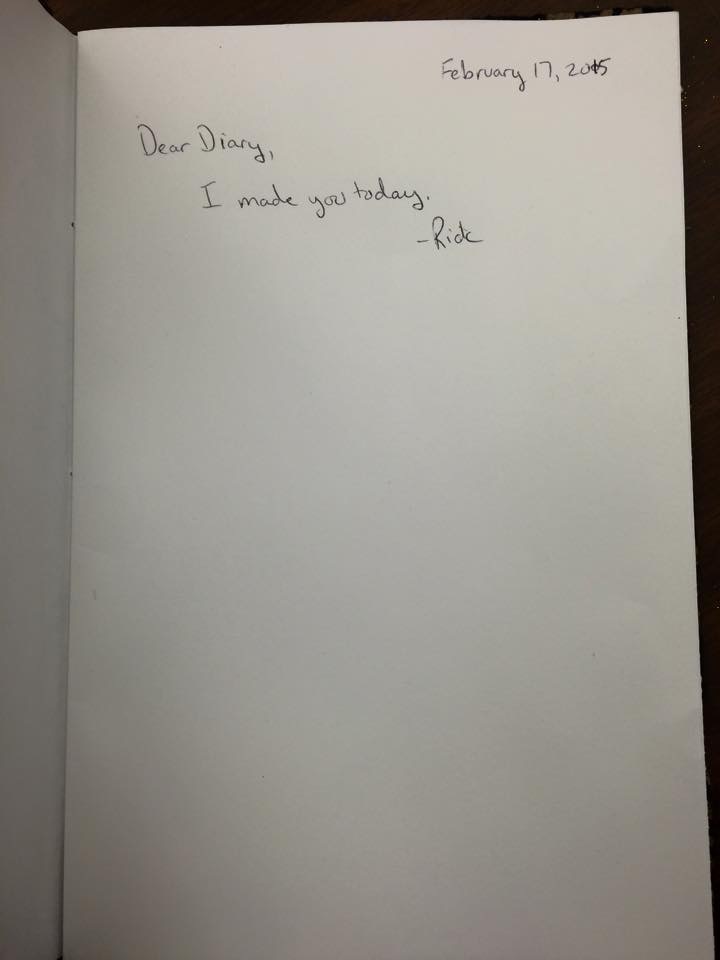 February 17, 2015
Dear Diary,
I made you today.
-Rick